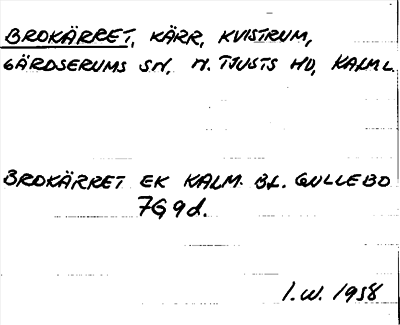 BROKÄRRET, KÄRR, KVISTRUM,
GÄRDSERUMS SN, N. TJUSTS HD, KALM L.
BROKÄRRET EK KALM. BL. GULLEBO
7G9d.
I.W. 1958